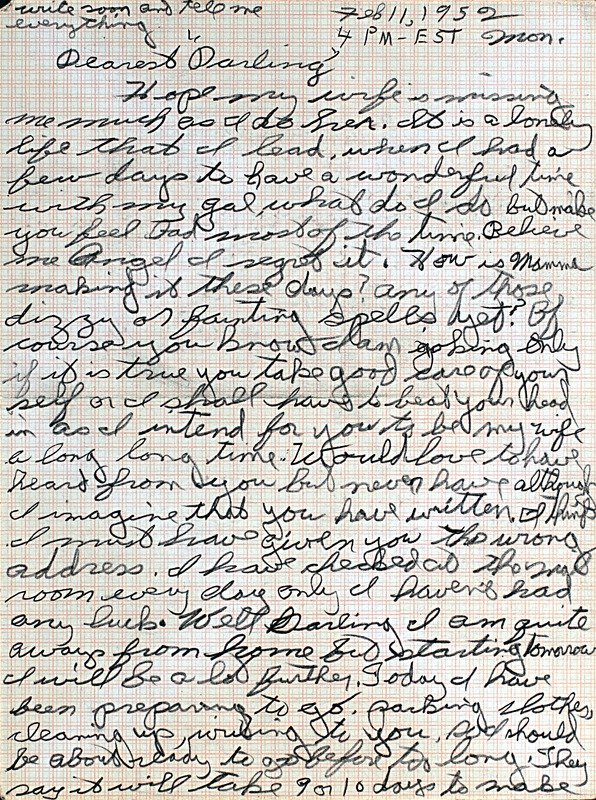 write soon and tell me
everything
Feb 11, 1952
4 PM - EST Mon.
"Dearest Darling"
Hope my wife is missing
me much as I do her. It is a lonely
life that I lead, when I had a
few days to have a wonderful time
with my gal, what do I do but make
you feel bad most of the time. Believe
me Angel I regret it. How is Mamma
making it these days? any of those
dizzy or fainting spells yet? Of
course you know I am joking Only
if it is true you take good care of your
self or I shall have to beat your head
in as I intend for you to be my wife
a long long time. Would love to have
heard from you but never have although
I imagine that you have written. I think
I must have given you the wrong
address. I have checked at the mail
room every day only I haven't had
any luck. Well Darling I am quite
aways from home but starting tomorrow
I will be a lot further. Today I have
been preparing to go. packing clothes,
cleaning up, writing to you, and should
be about ready to go before too long. They
say it will take 9 or 10 days to make